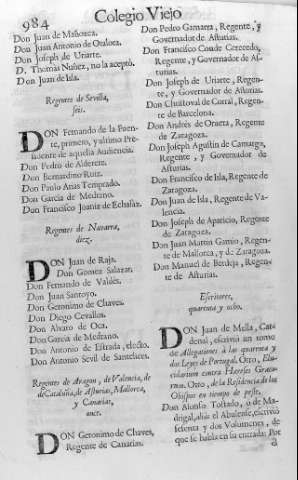 984
Colegio Viejo
Don Juan de Mañozca.
Don Juan Antonio de Otalora.
Don Joseph de Uriarte.
D. Thomás Nuñez, no la aceptò.
Don Juan de Isla.
Regentes de Sevilla,
seis.
DON Fernando de la Fuen-
te, primero, y ultimo Pre-
sidente de aquella Audiencia.
Don Pedro de Alderete.
Don Bernardino Ruiz.
Don Paulo Arias Temprado.
Don Garcia de Medrano.
Don Francisco Joaniz de Echalàz.
Regentes de Navarra,
diez.
DON Juan de Raja.
Don Gomez Salazar.
Don Fernando de Valdès.
Don Juan Santoyo.
Don Geronimo de Chaves.
Don Diego Cevallos.
Don Alvaro de Oca.
Don Garcia de Medrano.
Don Antonio de Estrada, electo.
Don Antonio Sevil de Santelices.
Regentes de Aragon, de Valencia, de
de Cataluña, de Asturias, Mallorca,
y Canarias,
once.
DON Geronimo de Chaves,
Regente de Canarias.
Don Pedro Gamarra, Regente, y
Governador de Asturias.
Don Francisco Conde Cerecedo,
Regente, y Governador de As-
turias.
Don Joseph de Uriarte, Regen-
te, y Governador de Asturias.
Don Christoval de Corral, Regen-
te de Barcelona.
Don Andrès de Orueta, Regente
de Zaragoza.
Don Joseph Agustin de Camargo,
Regente, y Governador de
Asturias.
Don Francisco de Isla, Regente de
Zaragoza.
Don Juan de Isla, Regente de Va-
lencia.
Don Joseph de Aparicio, Regente
de Zaragoza.
Don Juan Martin Gamio, Regen-
te de Mallorca, y de Zaragoza.
Don Manuel de Berdeja, Regen-
te de Asturias.
Escritores,
quarenta y ocho.
DON Juan de Mella, Car-
denal, escriviò un tomo
de Allegationes à las quarenta y
dos Leyes de Portugal. Otro, Elu-
cidarium contra Hereses Graco-
rum. Otro, de la Residencia de los
Obispos en tiempo de peste.
Don Alonso Tostado, ò de Ma-
drigal, aliàs el Abulense, escriviò
setenta y dos Volumenes, de
que se habla en su entrada: Por